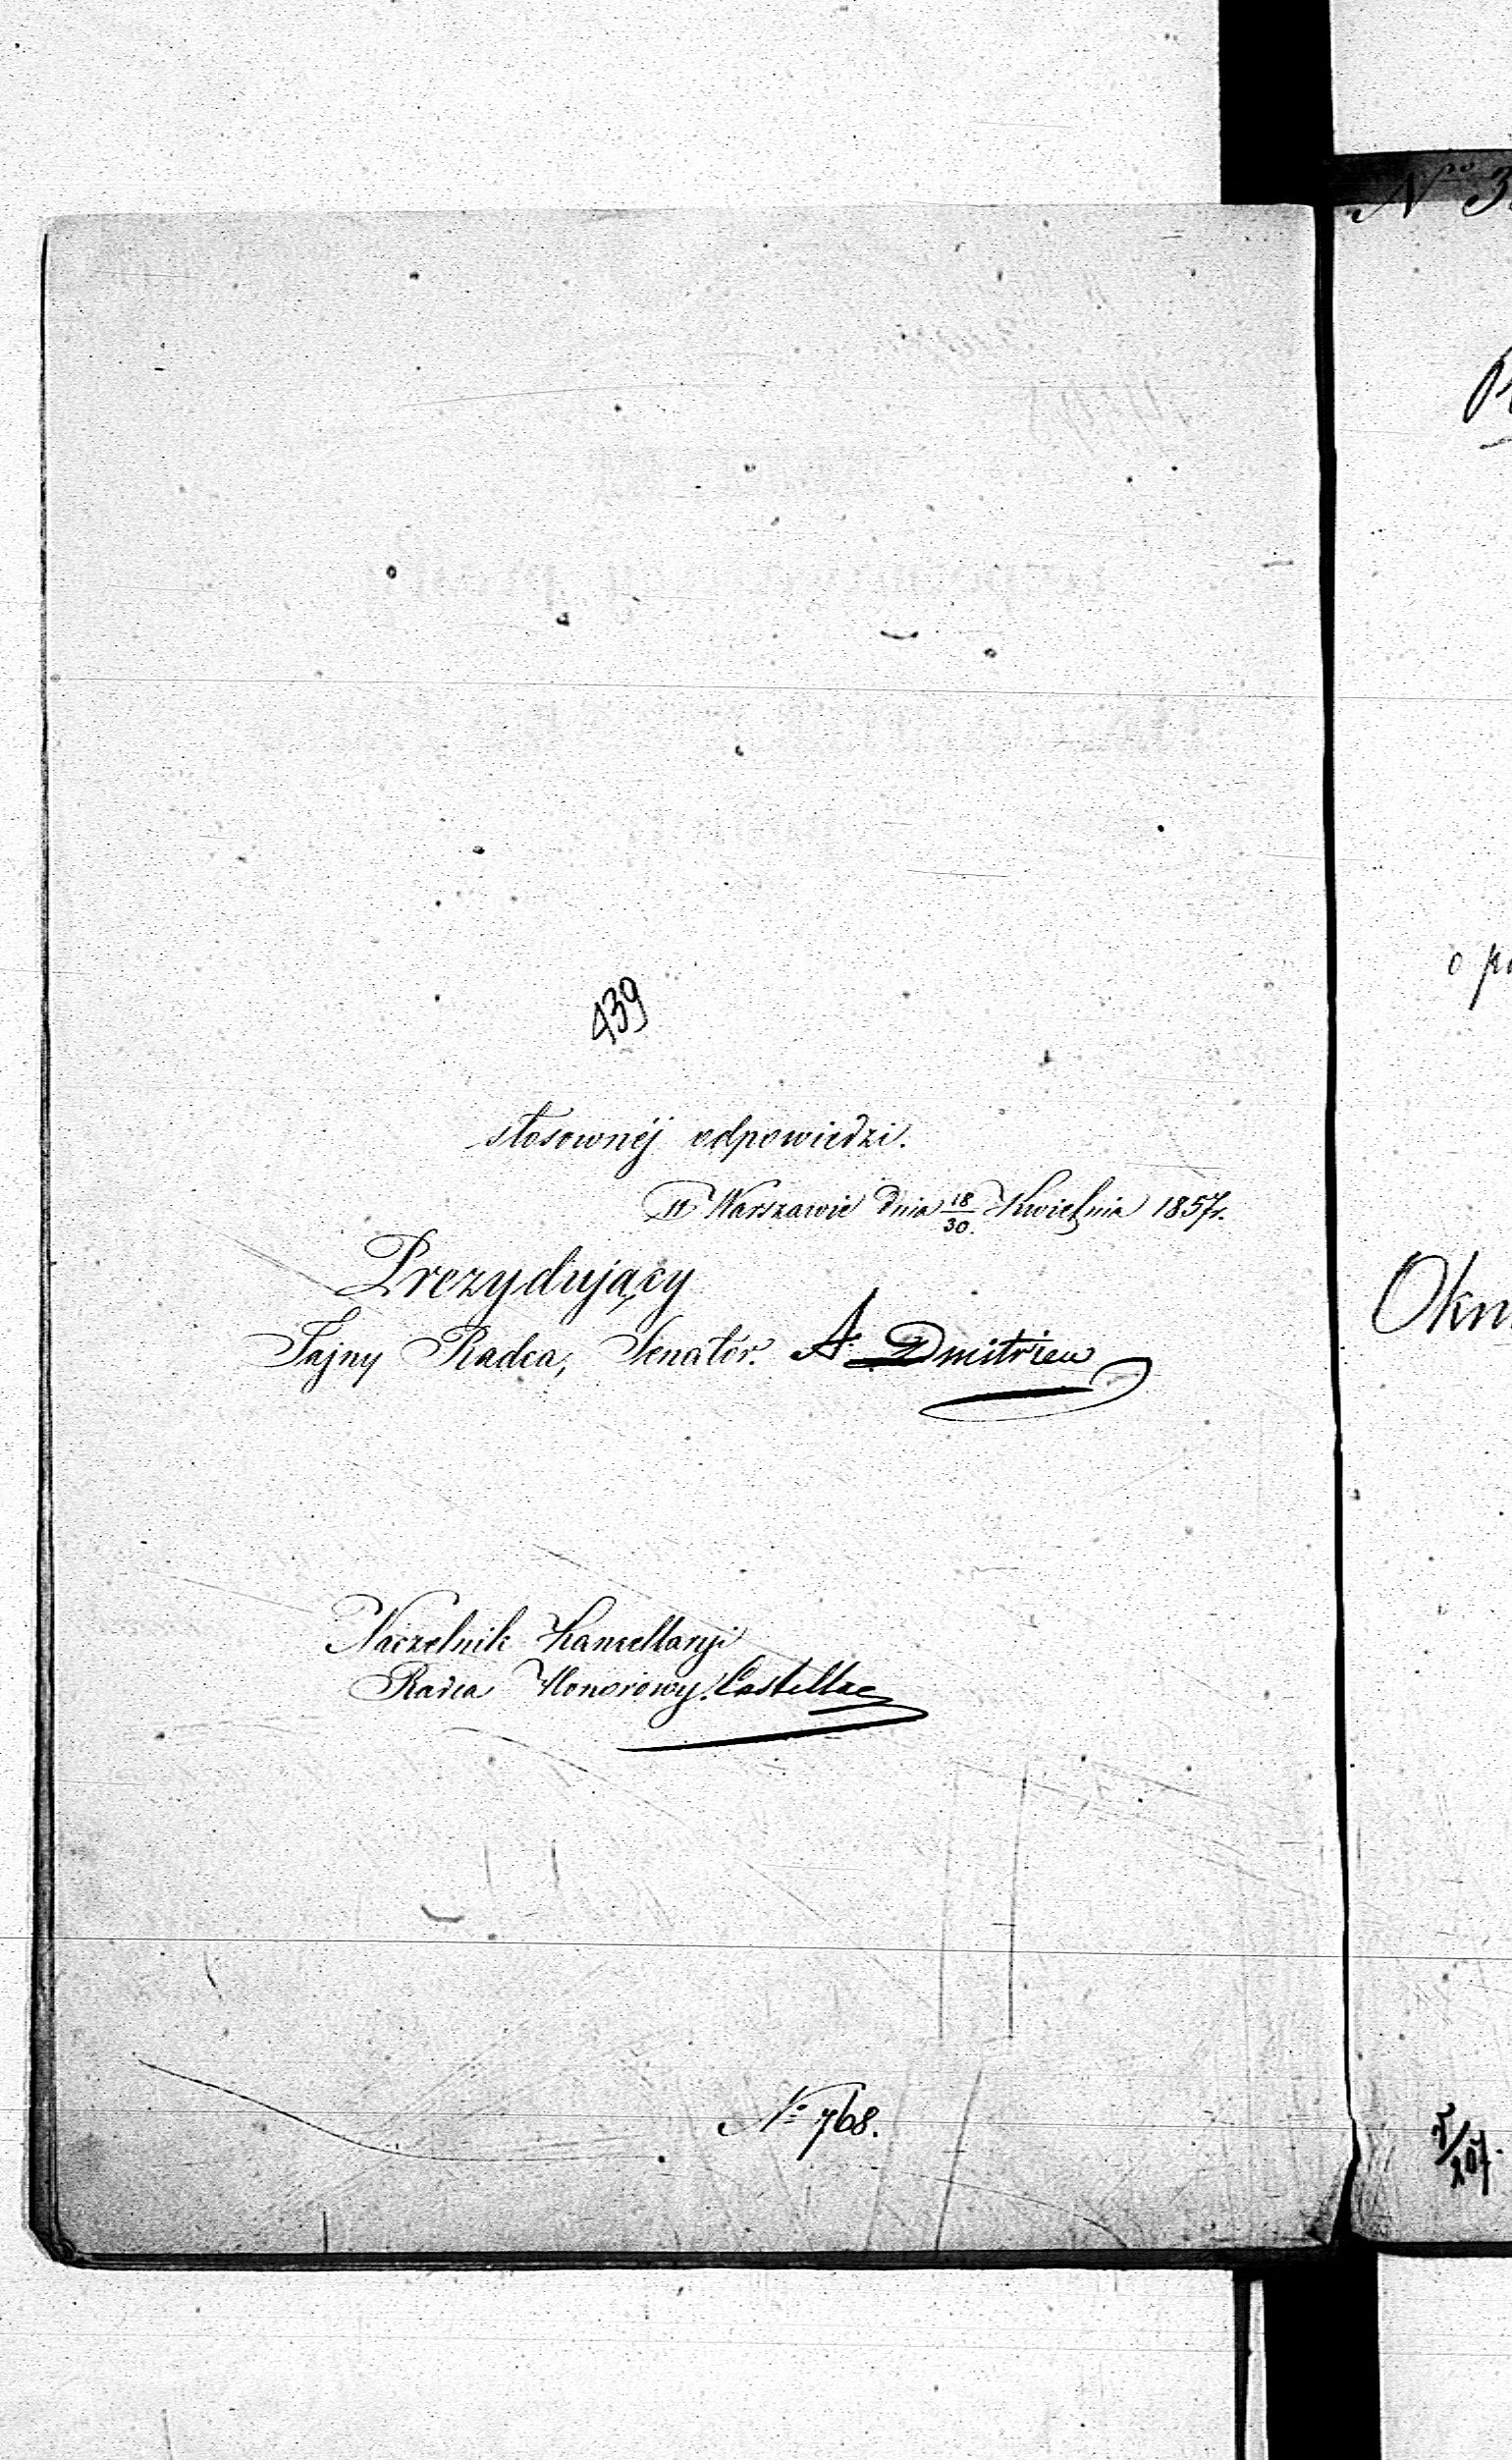 439
stosownéj odpowiedzi.
W Warszawie dnia 18/30. Kwietnia 1857r.
Prezydujący
Tajny Radca, Senator. A. Dmitriew
Naczelnik Kancellaryi
Radca Honorowy.
№ 768.
№ 3
o po